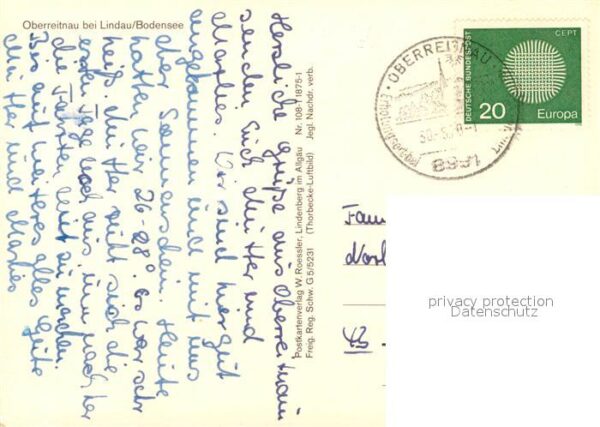 Oberreitnau bei Lindau/Bodensee
Herzliche Grüße aus Oberreitnau
senden Euch Mutter und
Marlies. Wir sind hier gut
angekommen und mit uns
der Sonnenschein. Heute
hatten wir 26-28°. es war sehr
heiß. Mutter ruht sich die
ersten Tage noch aus, um nachher
die Fahrten mit zu machen.
Bis auf weiteres alles Gute
Mutter und Marlies
Postkartenverlag W. Roessler, Lindenberg im Allgäu Nr. 108-11875-1
Freig. Reg. Schw. G 5/5231 (Thorbecke-Luftbild) Jegl. Nachdr. verb.
OBERREITNAU
8991
CEPT
DEUTSCHE BUNDESPOST
20 Europa
Fam
43
privacy protection
Datenschutz